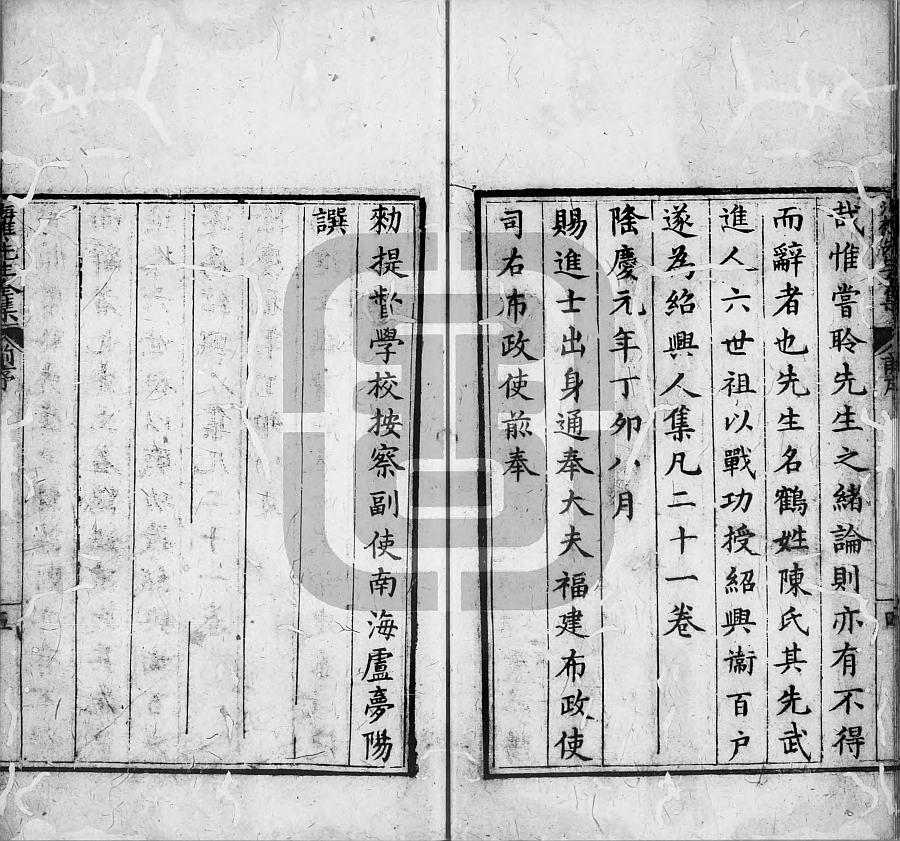 哉惟嘗聆先生之緒論則亦有不得
而辭者也先生名鶴姓陳氏其先武
進人六世祖以戰功授紹興衞百户
遂為紹興人集凡二十一卷
隆慶元年丁夘八月
賜進士出身通奉大夫福建布政使
司右布政使前奉
勑提督學校按察副使南海盧夢陽
譔